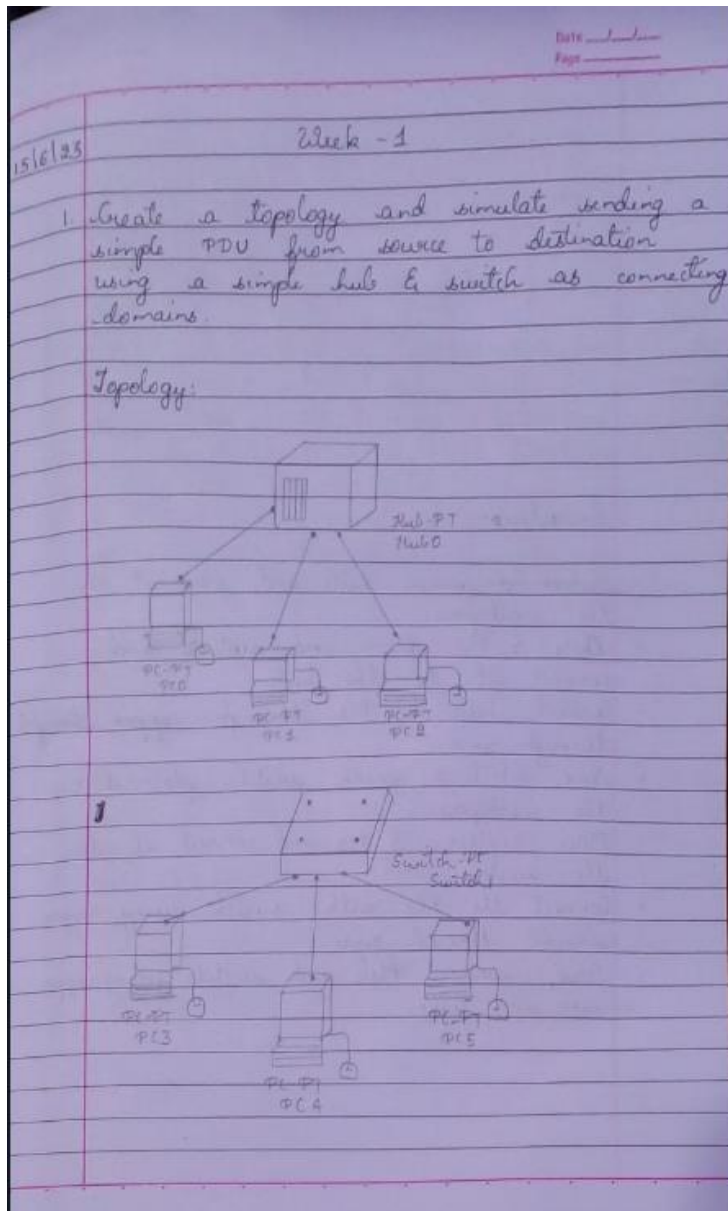 Date __/__/__
Page
15/6/23
Week - 1
1. Create a topology and simulate sending a
simple PDU from source to destination
using a simple hub & switch as connecting
domains.
Topology:
Hub-PT
Hub0
PC-PT
PC0
PC-PT
PC1
PC-PT
PC2
Switch-PT
Switch1
PC-PT
PC3
PC-PT
PC5
PC-PT
PC4